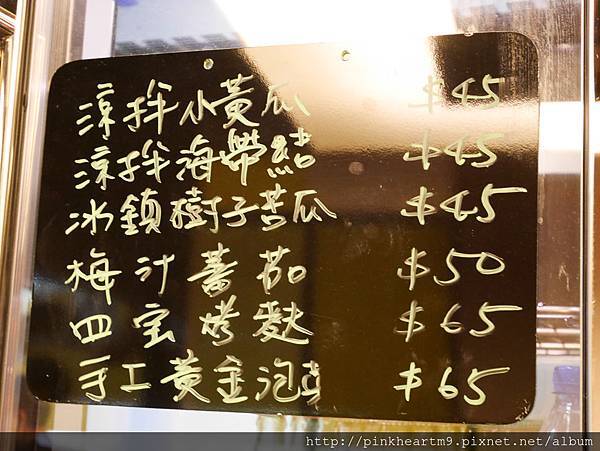 涼拌小黃瓜 $45
涼拌海帶結 $45
冰鎮樹子苦瓜 $45
梅汁蕃茄 $50
四宝烤麩 $65
手工黃金泡 $65
http://pinkheartm9.pixnet.net/album